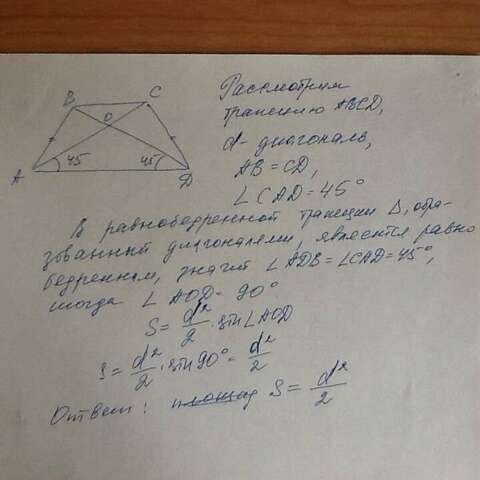 B C
O
45 45
A D
Рассмотрим
трапецию ABCD,
d - диагональ,
AB = CD,
∠CAD = 45°
В равнобедренной трапеции Δ, обра-
зованный диагоналями, является равно
бедренном, значит ∠ADB = ∠CAD = 45°,
тогда ∠AOD = 90°
S = d²/2 · sin∠AOD
S = d²/2 · sin 90° = d²/2
Ответ: S = d²/2